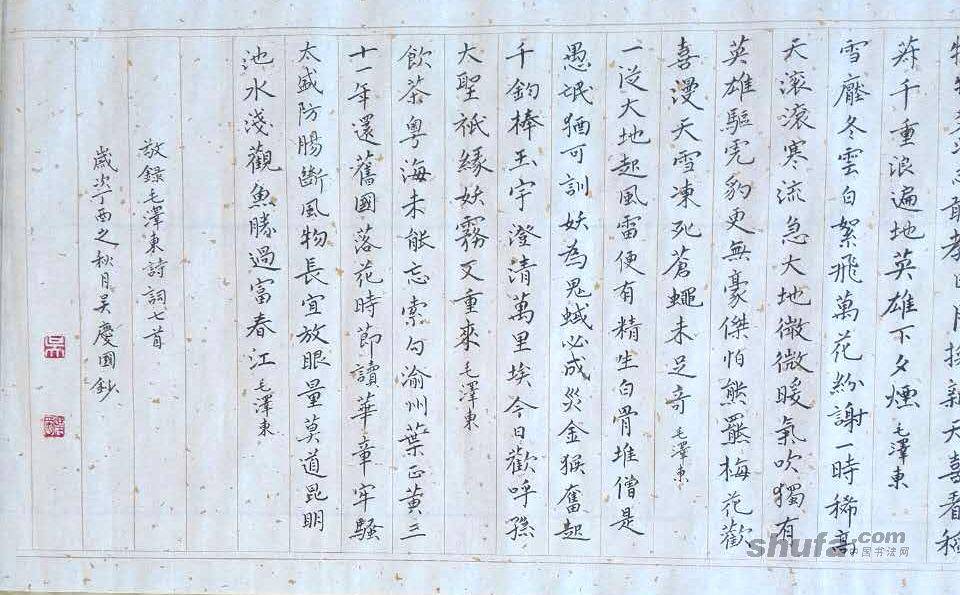 敢教日月換新天喜看稻
菽千重浪遍地英雄下夕煙 毛澤東
雪壓冬雲白絮飛萬花紛謝一時稀高
天滾滾寒流急大地微微暖氣吹獨有
英雄驅虎豹更無豪傑怕熊羆梅花歡
喜漫天雪凍死蒼蠅未足奇 毛澤東
一從大地起風雷便有精生白骨堆僧是
愚氓猶可訓妖為鬼蜮必成災金猴奮起
千鈞棒玉宇澄清萬里埃今日歡呼孫
大聖祇緣妖霧又重來 毛澤東
飲茶粵海未能忘索句渝州葉正黃三
十一年還舊國落花時節讀華章牢騷
太盛防腸斷風物長宜放眼量莫道昆明
池水淺觀魚勝過富春江 毛澤東
敬錄毛澤東詩詞七首
歲次丁酉之秋月吳慶國鈔
吳
shufa.com
中国书法网